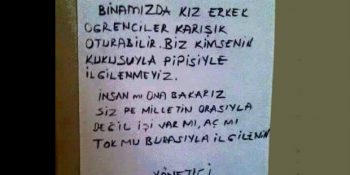 BİNAMIZDA KIZ ERKEK
ÖĞRENCİLER KARIŞIK
OTURABİLİR. BİZ KİMSENİN
KUKUSUYLA PİPİSİYLE
İLGİLENMEYİZ.
İNSAN MI ONA BAKARIZ
SİZ DE MİLLETİN ORASIYLA
DEĞİL İŞİ VAR MI, AÇ MI
TOK MU BURASIYLA İLGİLENİN
YÖNETİCİ